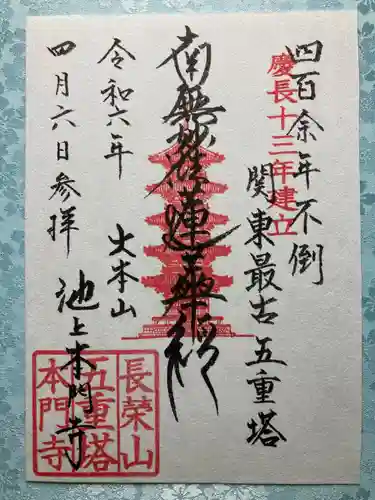 四百余年不倒
慶長十三年建立
関東最古五重塔
南無妙法蓮華経
令和六年
大本山
四月六日参拝
池上本門寺
長榮山
五重塔
本門寺